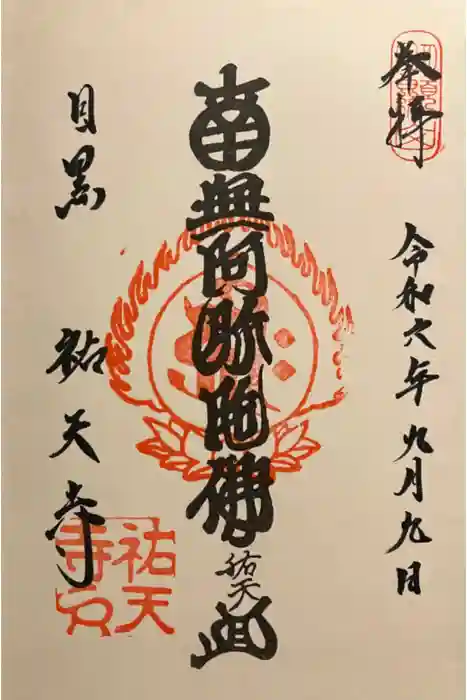 奉拝
令和六年九月九日
南無阿弥陀佛
祐天
目黒
祐天寺
祐天寺印